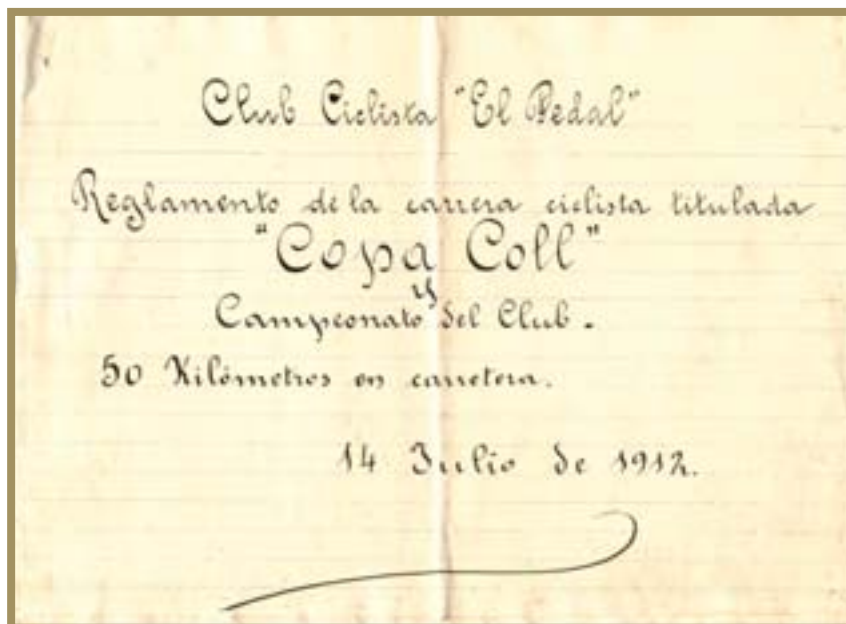 Club Ciclista "El Pedal"
Reglamento de la carrera ciclista titulada
"Copa Coll"
y
Campeonato del Club.
50 Kilómetros en carretera.
14 Julio de 1912.